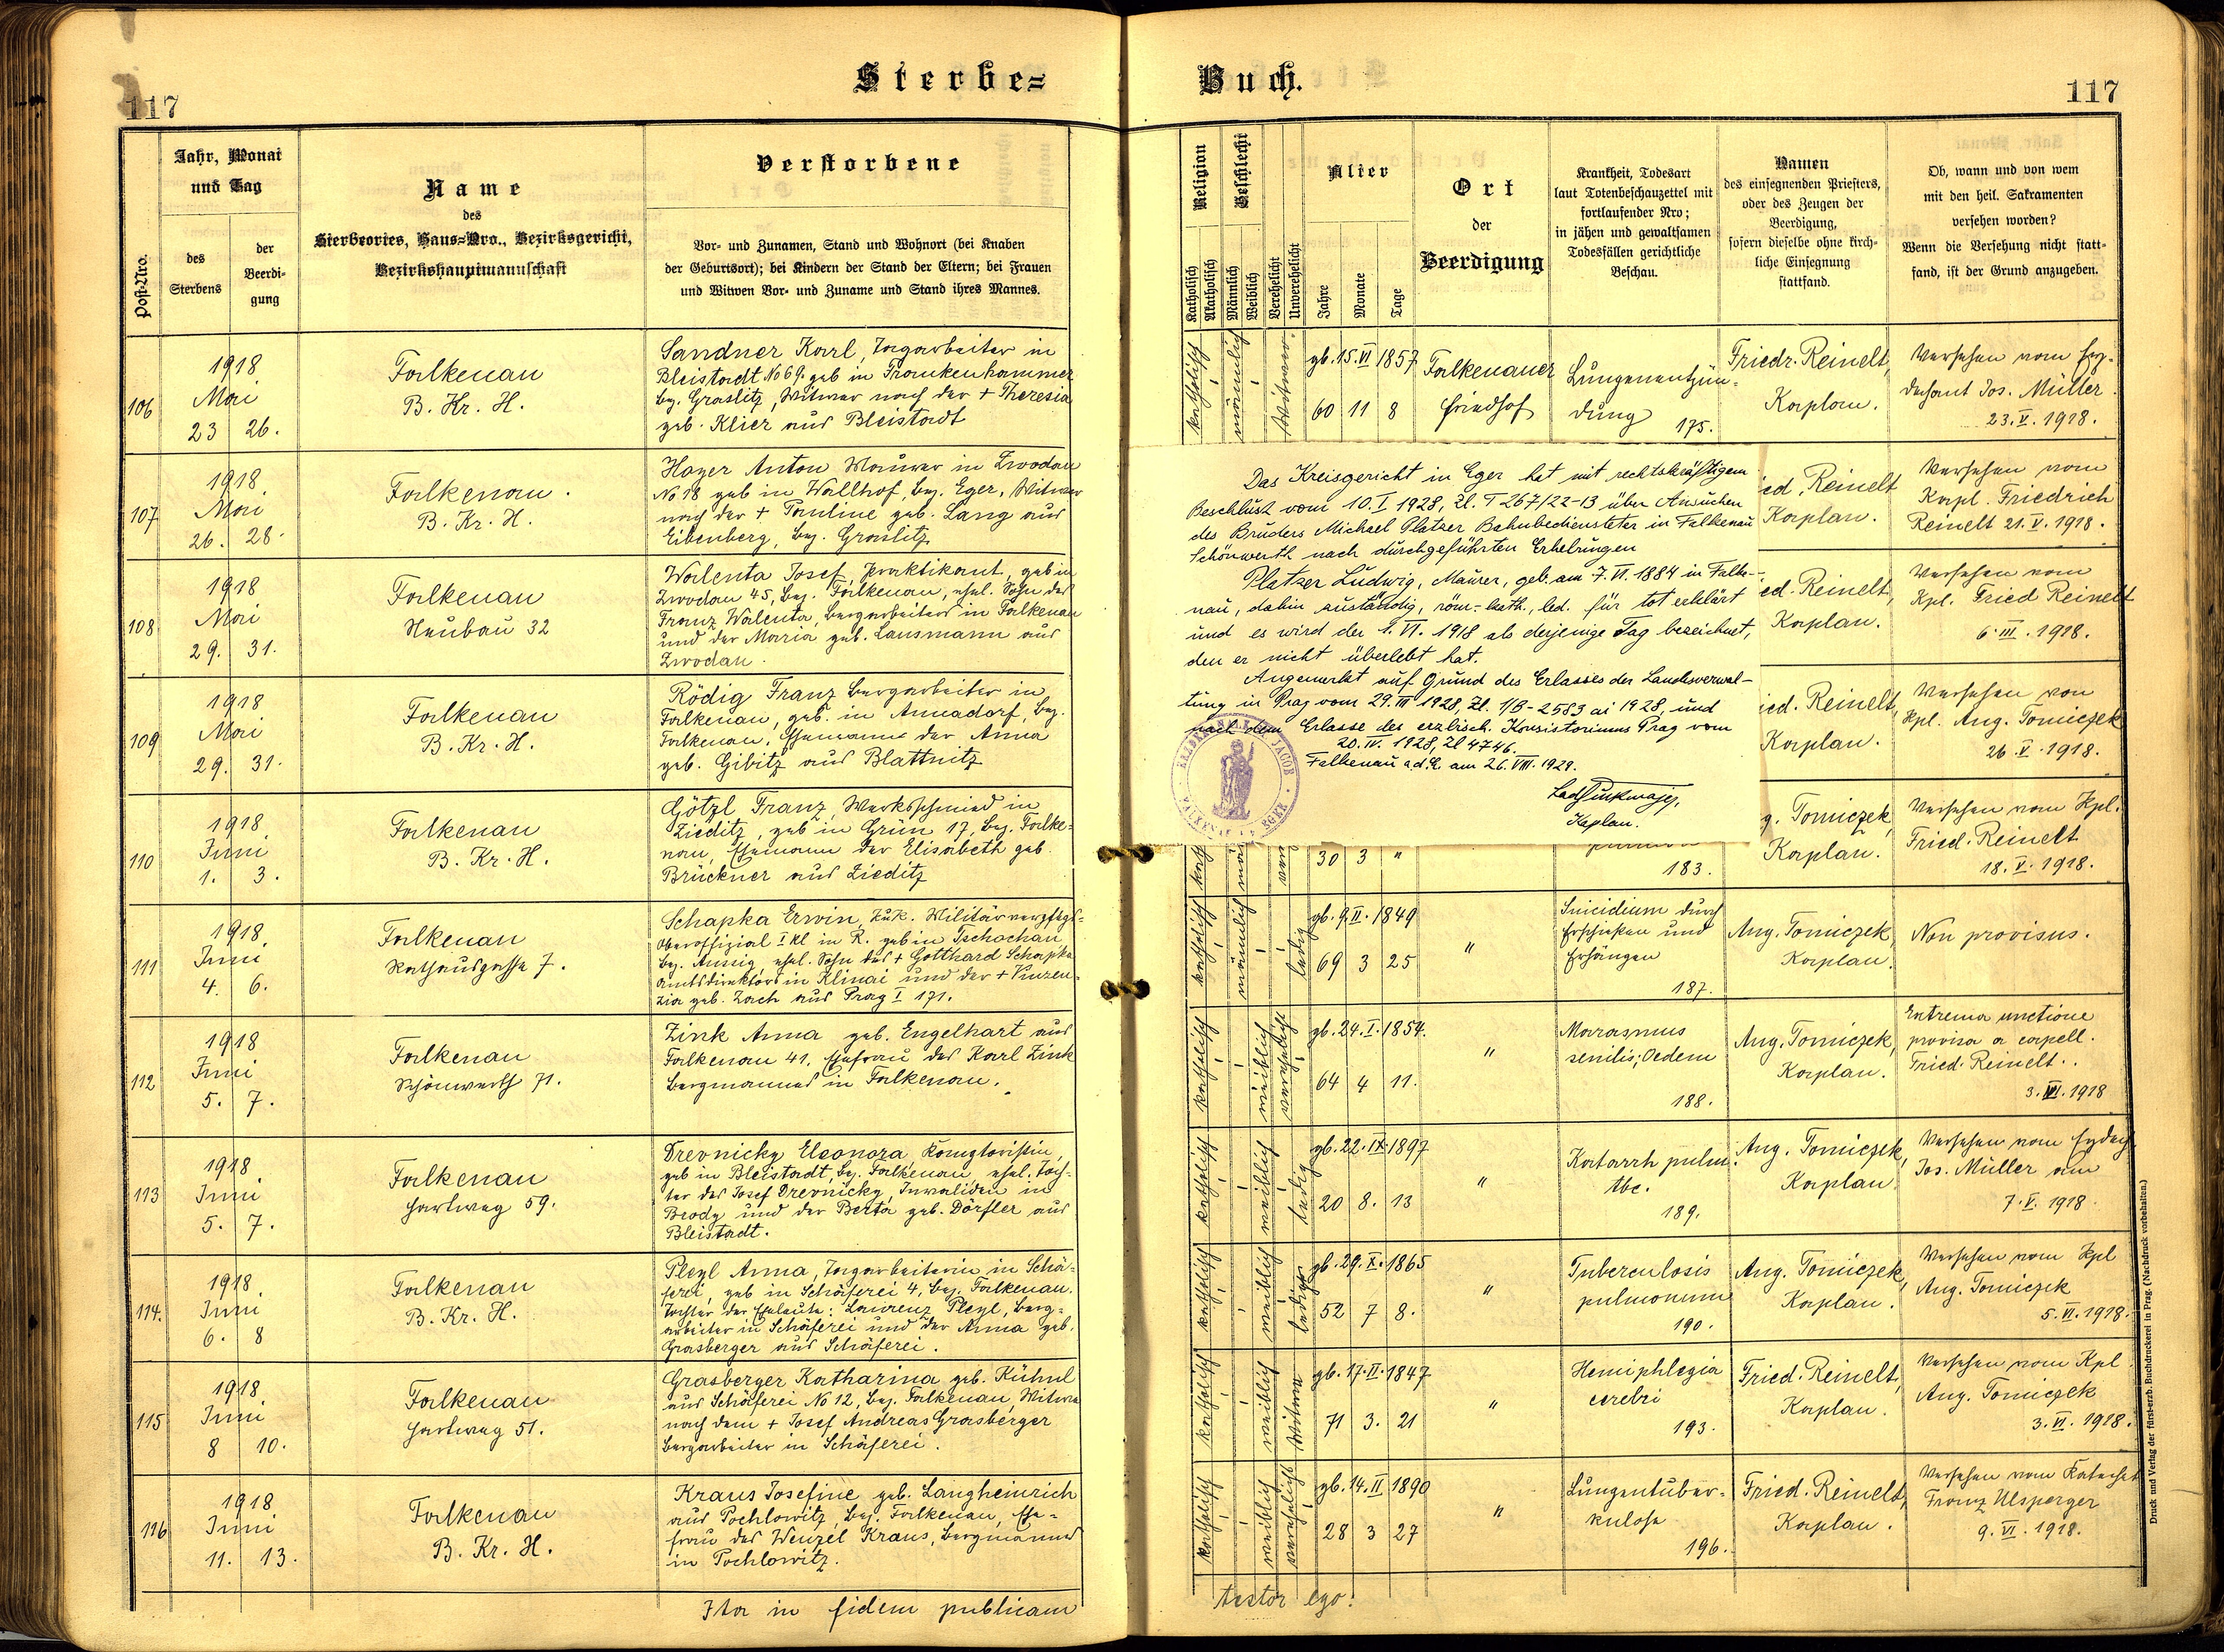 Sterbe=
Buch.
117
117
Post-Nro.
Jahr, Monat
und Tag
des
Sterbens
der
Beerdi-
gung
Name
des
Sterbeortes, Haus=Nro., Bezirksgericht,
Bezirkshauptmannschaft
Verstorbene
Vor- und Zunamen, Stand und Wohnort (bei Knaben
der Geburtsort); bei Kindern der Stand der Eltern; bei Frauen
und Witwen Vor- und Zuname und Stand ihres Mannes.
Religion
Katholisch
Akatholisch
Geschlecht
Männlich
Weiblich
Verehelicht
Unverehelicht
Alter
Jahre
Monate
Tage
Ort
der
Beerdigung
Krankheit, Todesart
laut Totenbeschauzettel mit
fortlaufender Nro;
in jähen und gewaltsamen
Todesfällen gerichtliche
Beschau.
Namen
des einsegnenden Priesters,
oder des Zeugen der
Beerdigung,
sofern dieselbe ohne kirch-
liche Einsegnung
stattfand.
Ob, wann und von wem
mit den heil. Sakramenten
versehen worden?
Wenn die Versehung nicht statt-
fand, ist der Grund anzugeben.
106
1918
Mai
23 26.
Falkenau
B. Kr. H.
Sandner Karl, Tagarbeiter in
Bleistadt No 69. geb in Frankenhammer
bez. Graslitz, Witwer nach der + Theresia
geb. Klier aus Bleistadt
katholisch
männlich
Witwer.
gb. 15. VI 1857
60 11 8
Falkenauer
Friedhof
Lungenentzün-
dung
175.
Friedr. Reinelt,
Kaplan.
Versehen vom Erz-
dechant Jos. Müller
23. V. 1918.
107
1918
Mai
26. 28.
Falkenau.
B. Kr. H.
Hager Anton Maurer in Zwodau
No 18 geb in Wallhof, bez. Eger, Witwer
nach der + Pauline geb. Lang aus
Eibenberg, bez. Graslitz
ied. Reinelt
Kaplan.
Versehen vom
Kapl. Friedrich
Reinelt 21. V. 1918.
108
1918
Mai
29. 31.
Falkenau
Neubau 32
Walenta Josef, Praktikant, geb in
Zwodau 45, bez. Falkenau, ehel. Sohn des
Franz Walenta, Bergarbeiters in Falkenau
und der Maria geb. Lausmann aus
Zwodau.
ed. Reinelt,
Kaplan.
Versehen vom
Kpl. Fried Reinelt
6. III. 1918.
109
1918
Mai
29. 31.
Falkenau
B. Kr. H.
Rödig Franz Bergarbeiter in
Falkenau, geb. in Annadorf, bez.
Falkenau, Ehemann der Anna
geb. Gibitz aus Blattnitz
ied. Reinelt,
Kaplan.
Versehen von
Kpl. Aug. Tomiczek
26. V. 1918.
110
1918
Juni
1. 3.
Falkenau
B. Kr. H.
Götzl Franz, Werksschmied in
Zieditz, geb in Grün 17, bez. Falke-
nau, Ehemann der Elisabeth geb.
Brückner aus Zieditz
30 3 "
183.
g. Tomiczek,
Kaplan.
Versehen vom Kpl.
Fried. Reinelt
18. V. 1918.
Das Kreisgericht in Eger hat mit rechtskräftigem
Beschluss vom 10. I 1928, Zl. T 267/22-13 über Ansuchen
des Bruders Michael Platzer Bahnbediensteter in Falkenau
Schönwerth nach durchgeführten Erhebungen
Platzer Ludwig, Maurer, geb. am 7. VI. 1884 in Falke-
nau, dahin zuständig, röm.-kath., led. für tot erklärt
und es wird der 1. VI. 1918 als derjenige Tag bezeichnet,
den er nicht überlebt hat.
Angemerkt auf Grund des Erlasses der Landesverwal-
tung in Prag vom 29. III 1928, Zl. 1/B-2583 ai 1928, und
nach dem Erlasse des erzbisch. Konsistoriums Prag vom
20. IV. 1928, Zl 4746.
Falkenau a. d. E. am 26. VIII. 1929.
Kaplan.
111
1918
Juni
4. 6.
Falkenau
Rathausgasse 7.
Schapka Erwin, k. u. k. Militärverpflegs-
Oberoffizial I kl in R. geb in Tschochau,
bez. Aussig, ehel. Sohn des + Gotthard Schapka
Amtsdirektors in Klinai und der + Vinzen-
zia geb. Zach aus Prag I 171.
katholisch
männlich
ledig
gb. 9. II. 1849
69 3 25
"
Suicidium durch
Erschießen und
Erhängen
187.
Aug. Tomiczek,
Kaplan.
Non provisus.
112
1918
Juni
5. 7.
Falkenau
Schönwerth 71.
Zink Anna geb. Engelhart aus
Falkenau 41. Ehefrau des Karl Zink
Bergmannes in Falkenau.
katholisch
weiblich
verehelicht
gb. 24. I. 1854.
64 4 11.
"
Marasmus
senilis; Oedem
188.
Aug. Tomiczek,
Kaplan.
Extrema unctione
provisa a capell.
Fried. Reinelt.
3. VI. 1918
113
1918
Juni
5. 7.
Falkenau
Hartweg 59.
Drevnicky Eleonora Komptoristin,
geb in Bleistadt, bez. Falkenau, ehel. Toch-
ter des Josef Drevnicky, Invaliden in
Brody und der Berta geb. Dörfler aus
Bleistadt.
katholisch
weiblich
ledig
gb. 22. IX. 1897
20 8. 13
"
Katarrh pulm.
tbc.
189.
Aug. Tomiczek,
Kaplan.
Versehen vom Erzdech
Jos. Müller am
7. V. 1918.
114.
1918
Juni
6. 8
Falkenau
B. Kr. H.
Pleyl Anna, Tagarbeiterin in Schä-
ferei, geb in Schäferei 4, bez. Falkenau.
Tochter der Eheleute: Laurenz Pleyl, Berg-
arbeiter in Schäferei und der Anna geb.
Grasberger aus Schäferei.
katholisch
weiblich
ledig
gb. 29. X. 1865
52 7 8.
"
Tuberculosis
pulmonum
190.
Aug. Tomiczek,
Kaplan.
Versehen vom Kpl
Aug. Tomiczek
5. VI. 1918.
115
1918
Juni
8 10.
Falkenau
Hartweg 51.
Grasberger Katharina geb. Kühnl
aus Schäferei No 12, bez. Falkenau, Witwe
nach dem + Josef Andreas Grasberger
Bergarbeiter in Schäferei.
katholisch
weiblich
Witwe
gb. 17. II. 1847
71 3. 21
"
Hemiphlegia
cerebri
193.
Fried. Reinelt,
Kaplan.
Versehen vom Kpl.
Aug. Tomiczek
3. VI. 1918.
116
1918
Juni
11. 13.
Falkenau
B. Kr. H.
Kraus Josefine geb. Langheinrich
aus Pochlowitz, bez. Falkenau, Ehe-
frau des Wenzel Kraus, Bergmannes
in Pochlowitz.
katholisch
weiblich
verehelicht
gb. 14. II 1890
28 3 27
"
Lungentuber-
kulose
196.
Fried. Reinelt,
Kaplan.
Versehen vom Katechet
Franz Ulsperger
9. VI. 1918.
Ita in fidem publicam
testor ego:
Druck und Verlag der fürst-erzb. Buchdruckerei in Prag. (Nachdruck vorbehalten.)